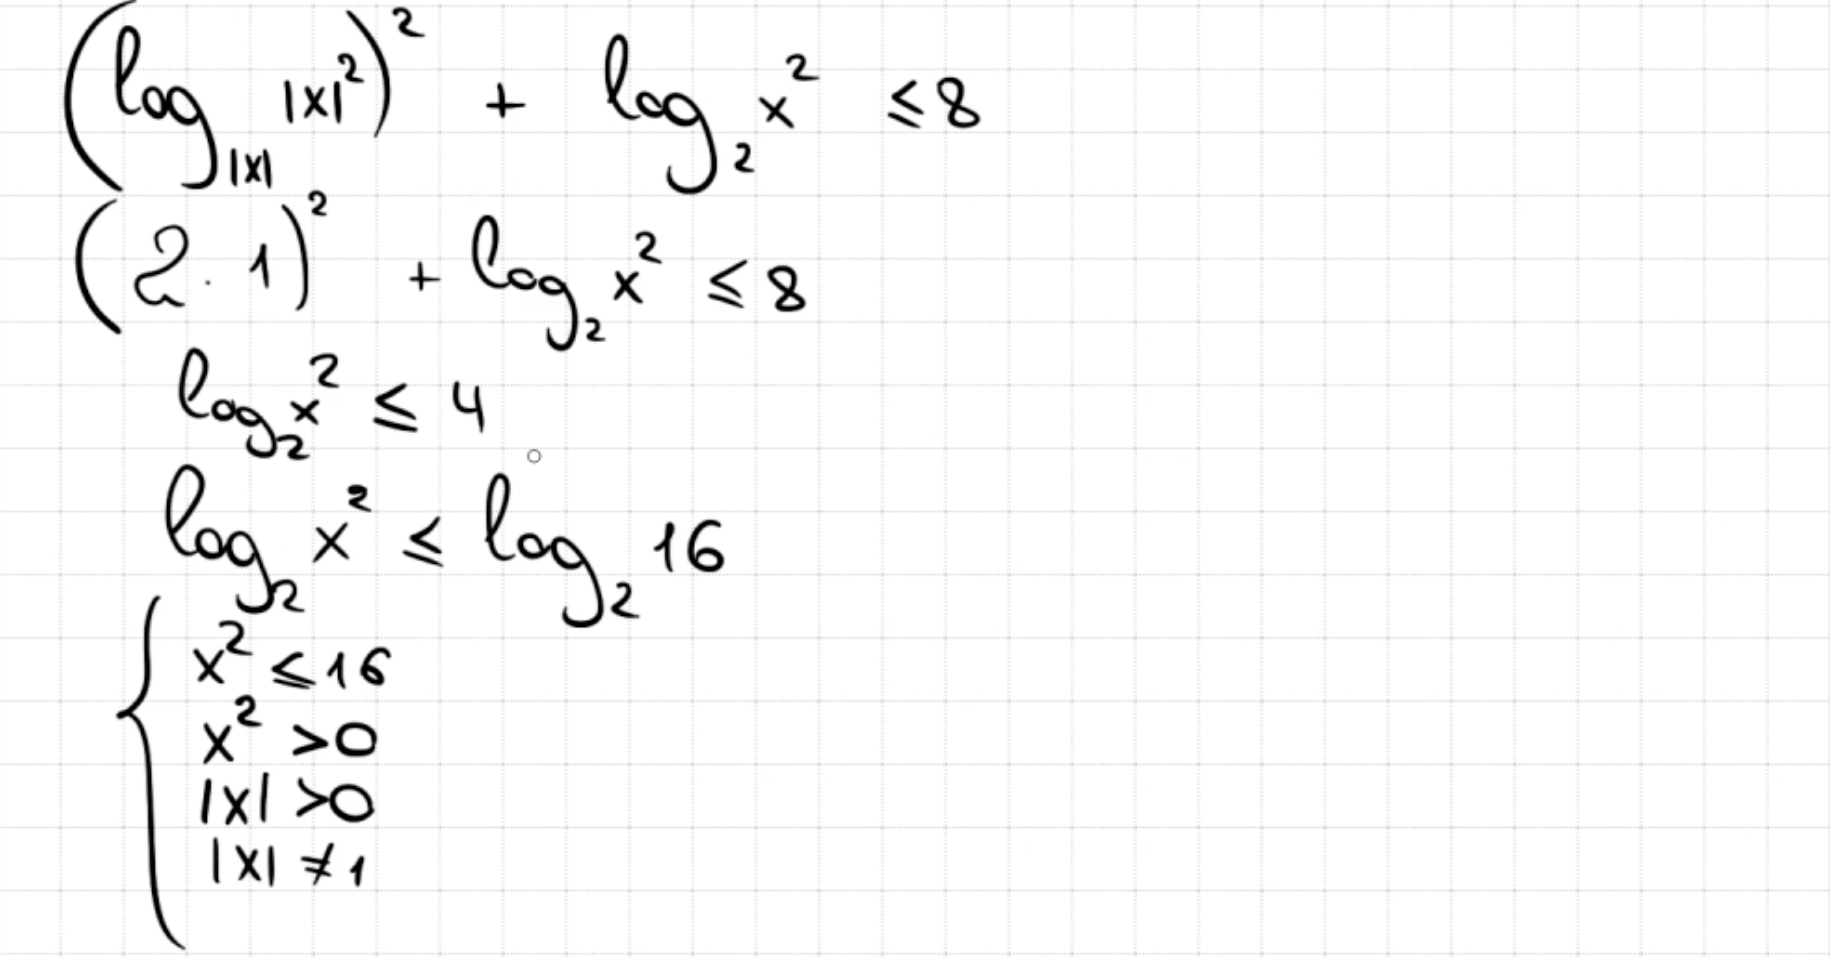 (log_|x| |x|²)² + log₂ x² ≤ 8
(2 · 1)² + log₂ x² ≤ 8
log₂ x² ≤ 4
log₂ x² ≤ log₂ 16
{ x² ≤ 16
x² > 0
|x| > 0
|x| ≠ 1